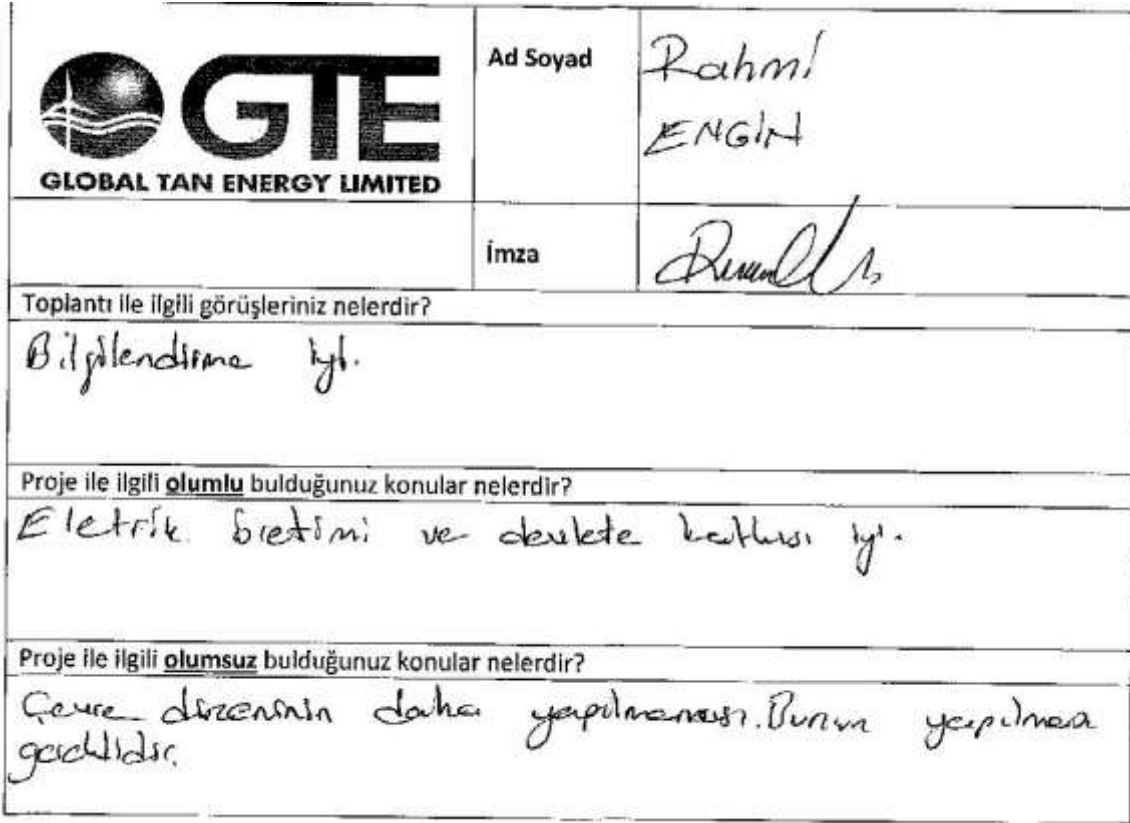 GTE
GLOBAL TAN ENERGY LIMITED
Ad Soyad
Rahmi
ENGİN
İmza
Toplantı ile ilgili görüşleriniz nelerdir?
Bilgilendirme iyi.
Proje ile ilgili olumlu bulduğunuz konular nelerdir?
Eletrik üretimi ve devlete katkısı iyi.
Proje ile ilgili olumsuz bulduğunuz konular nelerdir?
Çevre düzeninin daha yapılmaması. Bunun yapılması
gereklidir.